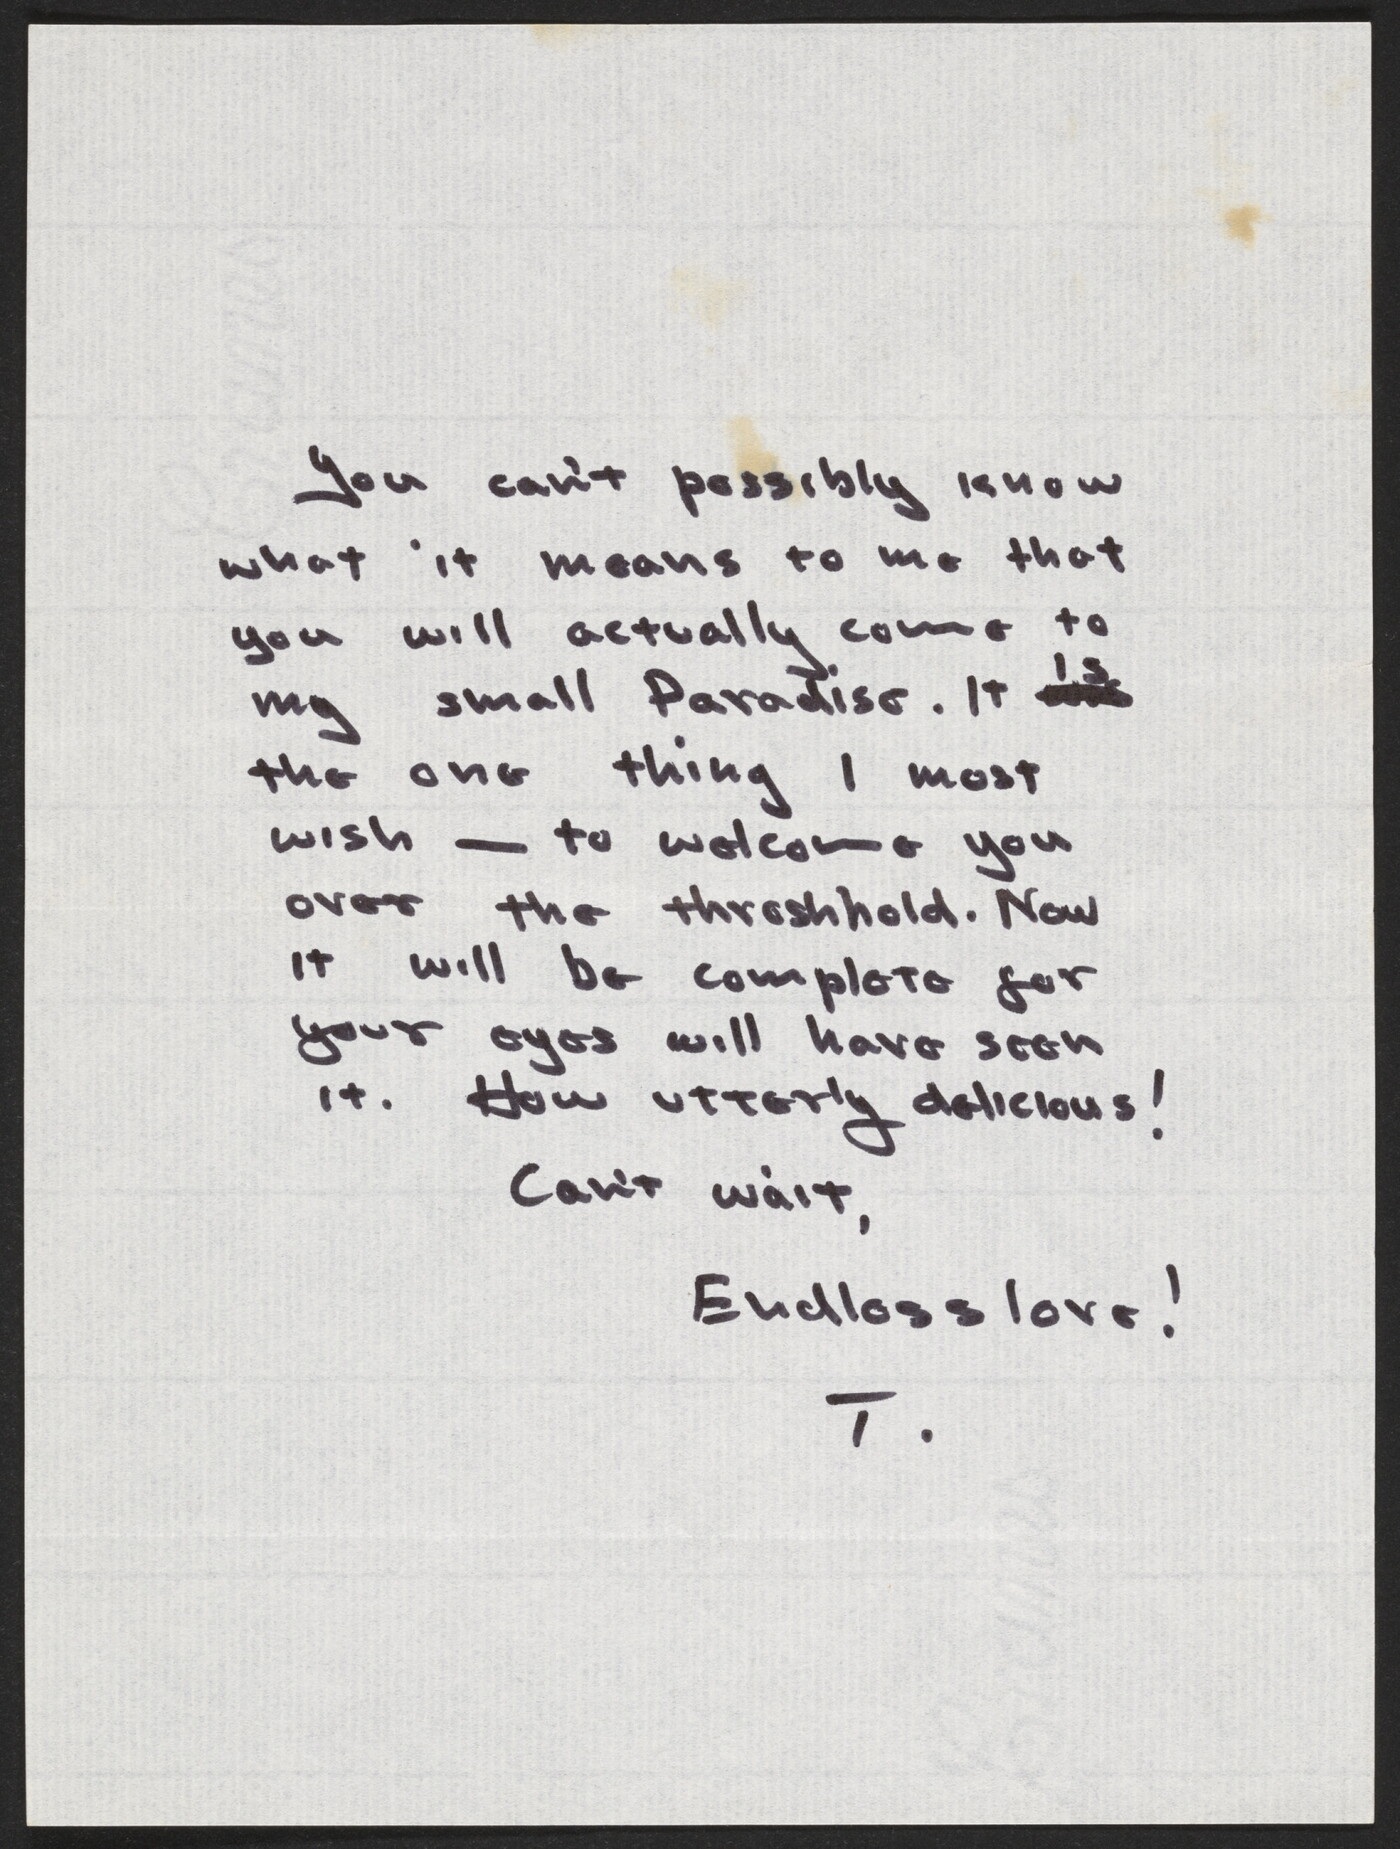 You can't possibly know
what it means to me that
you will actually come to
my small Paradise. It is
the one thing I most
wish — to welcome you
over the threshhold. Now
it will be complete for
your eyes will have seen
it. How utterly delicious!
Can't wait,
Endless love!
T.